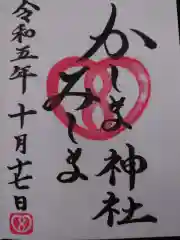 かしま神社
みしま
令和五年
十月十七日